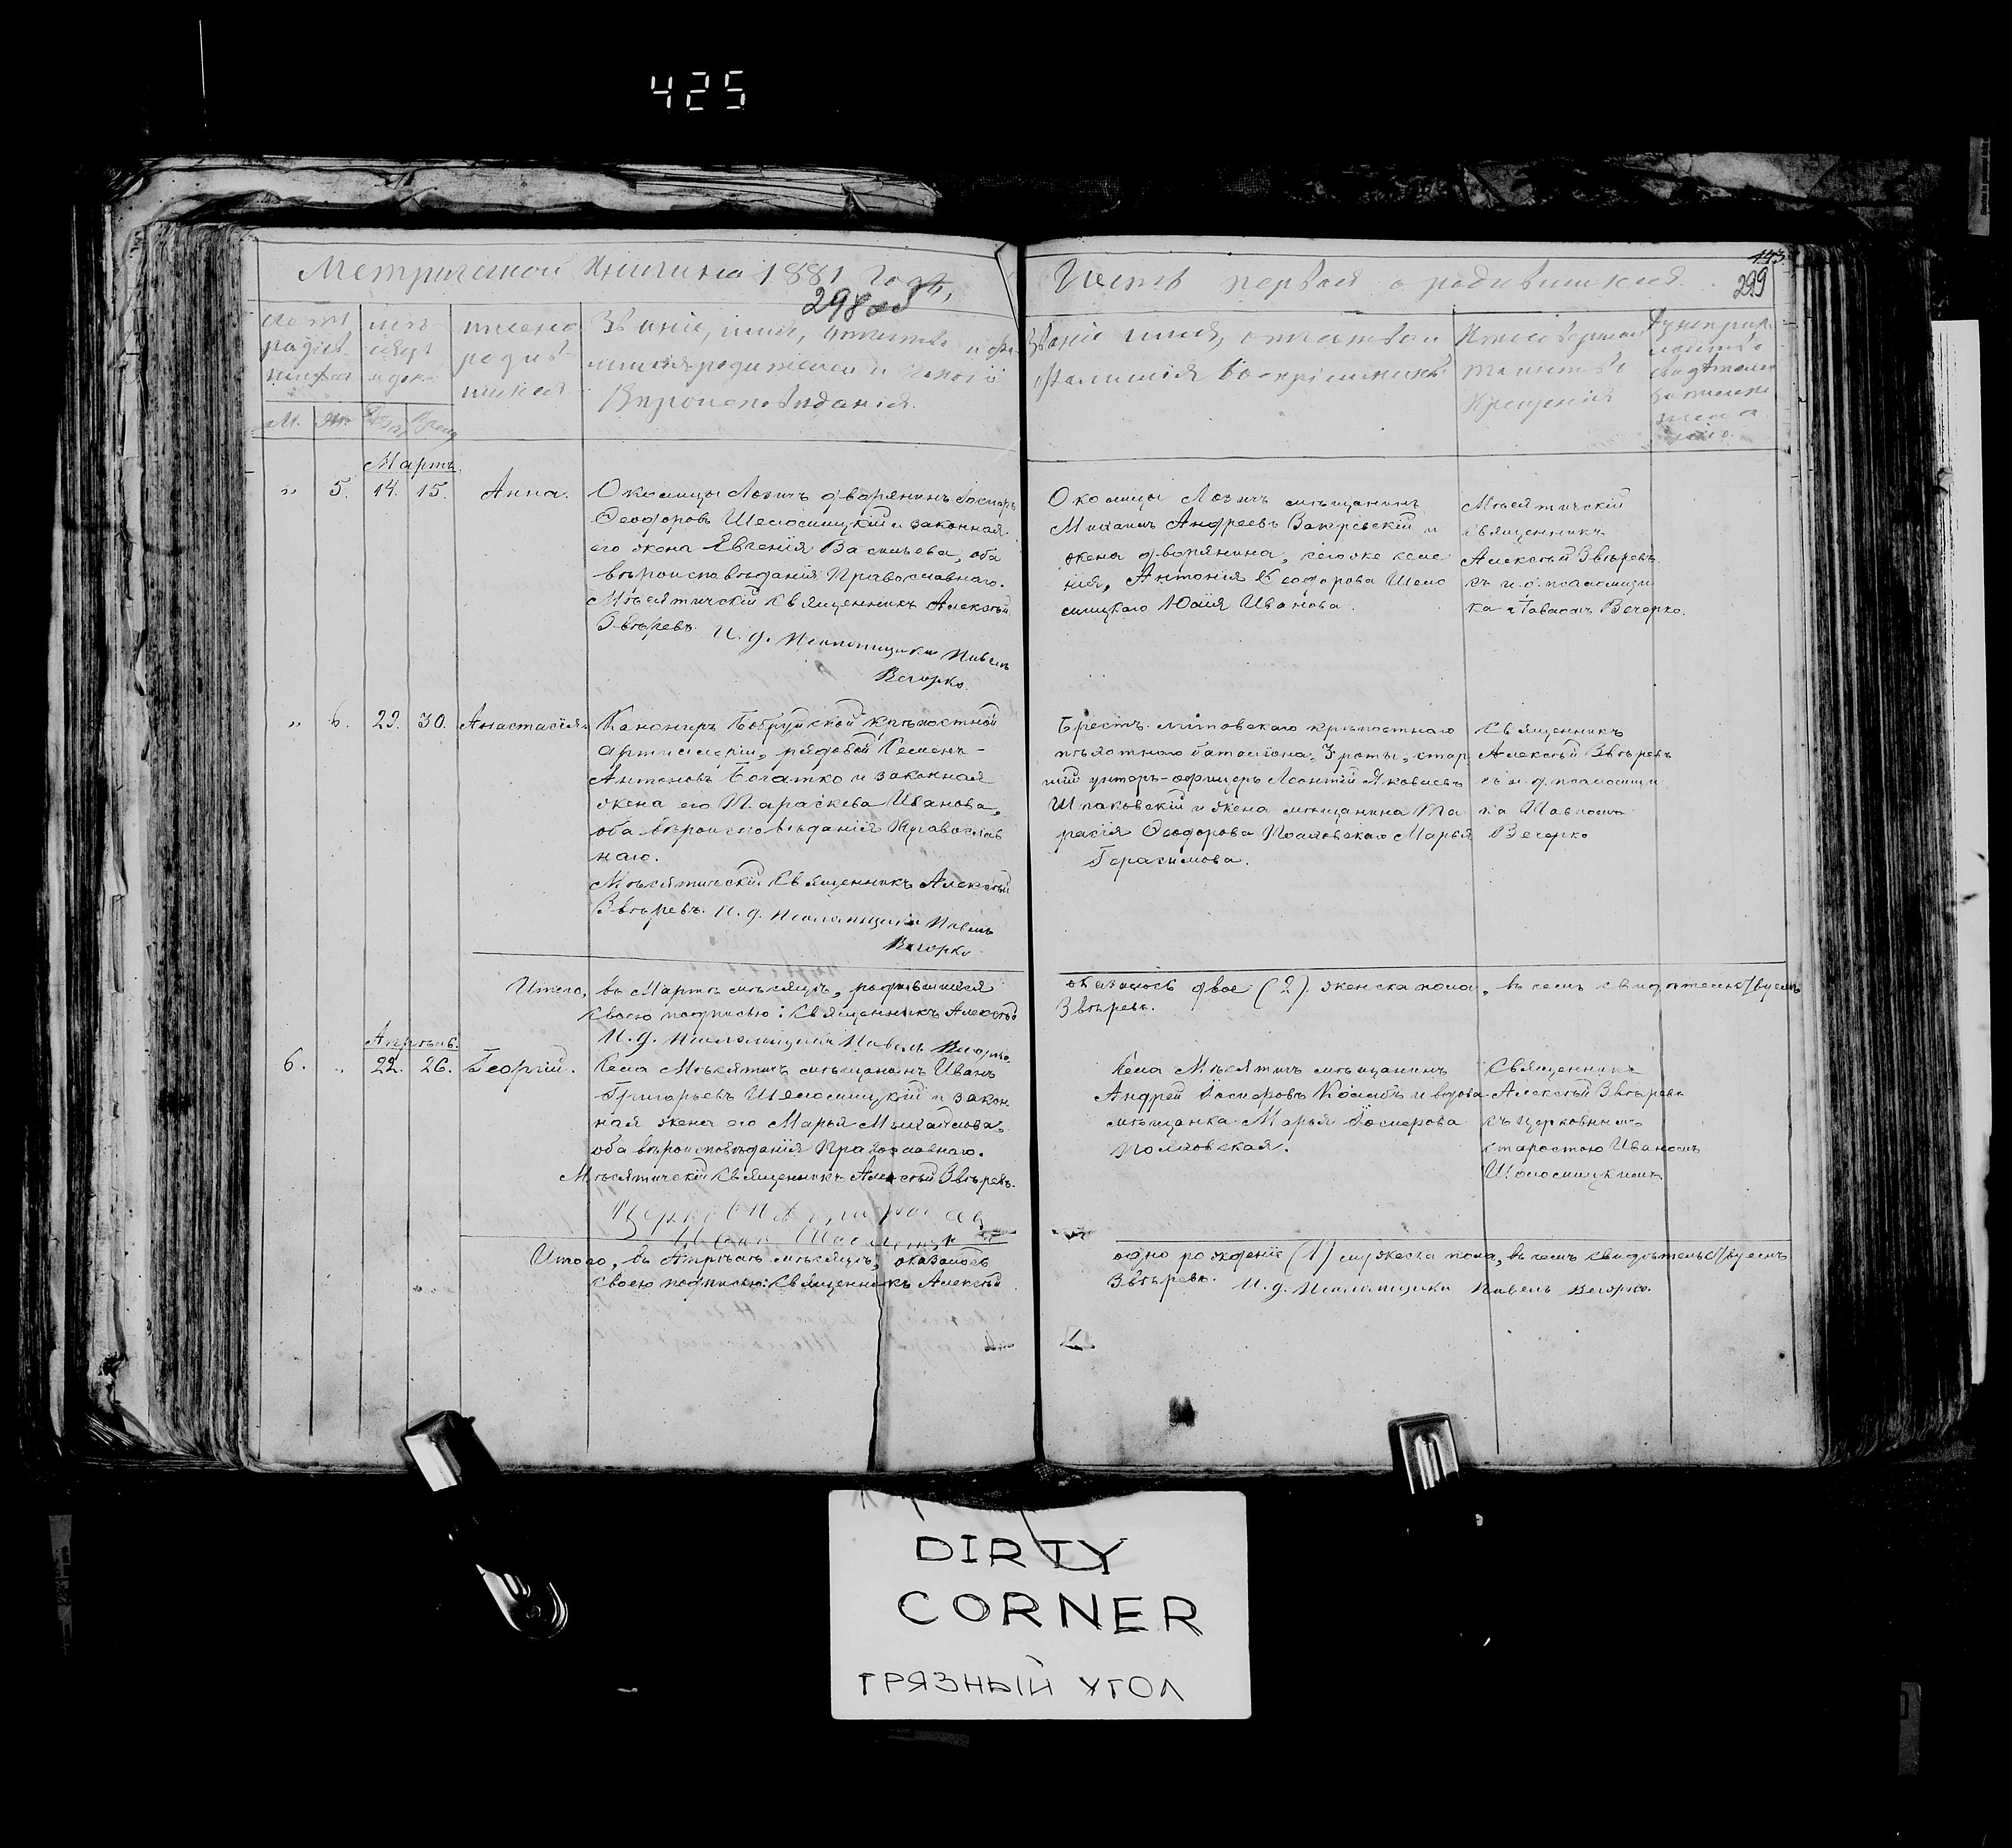 425
Метрической книги на 1881 годъ,
298об
Часть первая о родившихся.
143
299
имена
родив-
шихся
Званіе, имя, отчество и фа-
милія родителей и какого
Вѣроисповѣданія.
Званіе имя, отчество и
фамилія воспріемниковъ
Кто совершалъ
таинство
Крещенія
М.
Мартъ.
" 5. 14. 15. Анна.
Околицы Лозичъ дворянинъ Іосифъ
Ѳеодоровъ Шелосицкій и законная
его жена Евгенія Васильева, оба
вѣроисповѣданія Православнаго.
Мѣсятичскій Священникъ Алексѣй
Звѣревъ. И. д. Псаломщика Павелъ
Вечорко.
Околицы Лозичъ мѣщанинъ
Михаилъ Андреевъ и
жена дворянина, тогоже селе
нія, Антонія Ѳеодорова Шело
сицкаго Юлія Иванова.
Мѣсятичскій
священникъ
Алексѣй Звѣревъ
съ и. д. псаломщи
ка Павломъ Вечорко.
" 6. 29. 30. Анастасія.
Канониръ Бобруйской крѣпостной
артиллеріи, рядовой Семенъ
Антоновъ Богатко и законная
жена его Параскева Иванова,
оба вѣроисповѣданія Православ
наго.
Мѣсятичскій Священникъ Алексѣй
Звѣревъ. И. д. Псаломщика Павелъ
Вечорко
Брестъ-литовскаго крѣпостного
пѣхотнаго баталіона, 3 роты, стар
шій унтеръ-офицеръ Леонтій Яковлевъ
Шпаковскій и жена мѣщанина Та
расія Ѳеодорова Марья
Герасимова.
Священникъ
Алексѣй Звѣревъ
съ и. д. псаломщи
ка Павломъ
Вечорко
Итого, въ Мартѣ мѣсяцѣ, родившихся
оказалось двое (2) женска пола, въ чемъ свидѣтельствуемъ
своею подписью: Священникъ Алексѣй
Звѣревъ.
И. д. Псаломщика Павелъ Вечорко.
Апрѣль.
6. " 22. 26. Георгій.
Села Мѣсятичъ мѣщанинъ Иванъ
Григорьевъ Шелосицкій и закон
ная жена его Марья Михайлова,
оба вѣроисповѣданія Православнаго.
Мѣсятичскій Священникъ Алексѣй Звѣревъ.
Церковный староста
Иванъ
Села Мѣсятичъ мѣщанинъ
Андрей Іосифовъ и вдова
мѣщанка Марья Іосифова
Священникъ
Алексѣй Звѣревъ
съ церковнымъ
старостою Иваномъ
Шелосицкимъ
Итого, въ Апрѣлѣ мѣсяцѣ, оказалось
одно рожденіе (1) мужеска пола, въ чемъ свидѣтельствуемъ
своею подписью: Священникъ Алексѣй
Звѣревъ. И. д. Псаломщика Павелъ Вечорко.
DIRTY
CORNER
ГРЯЗНЫЙ УГОЛ